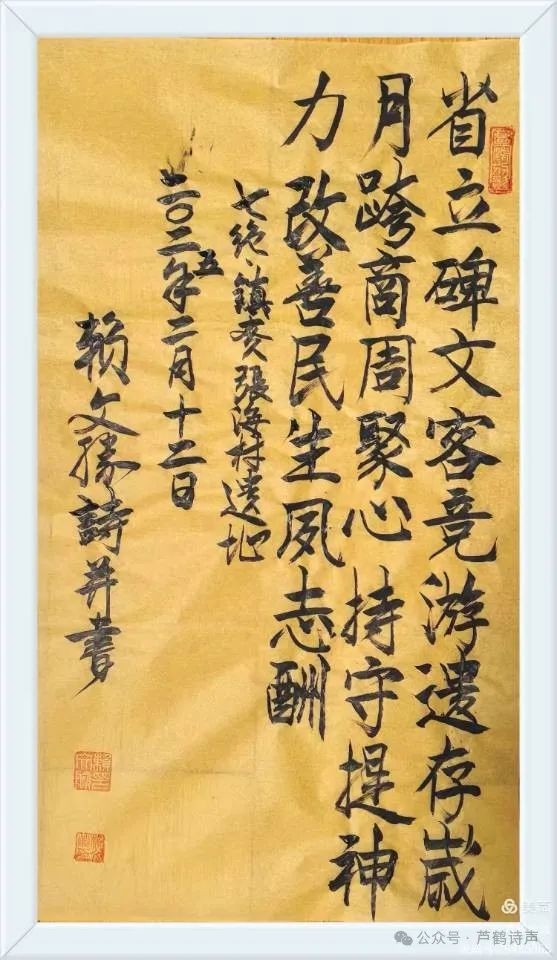 省立碑文客竞游遗存岁
月跨商周聚心持守提神
力改善民生夙志酬
七绝·镇亥张海村遗址
二〇二五年二月十二日
赖文胜詩并書
公众号·芦鹤诗声